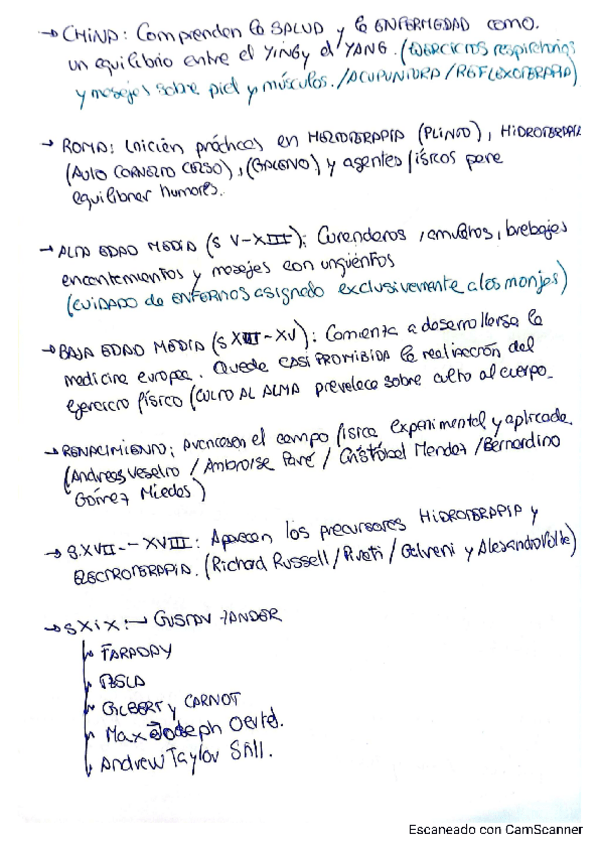 → CHINA: Comprenden la SALUD y la ENFERMEDAD como.
un equilibrio entre el YING y el YANG. (EJERCICIOS respiratorios
y masajes sobre piel y músculos. / ACUPUNTURA / REFLEXOTERAPIA)
→ ROMA: Inician prácticas en HELIOTERAPIA (PLINIO), HIDROTERAPIA
(AULO CORNELIO CELSO), (GALENO) y agentes físicos para
equilibrar humores.
→ ALTA EDAD MEDIA (S V-XIII): Curanderos, amuletos, brebajes
encantamientos y masajes con ungüentos
(CUIDADO de ENFERMOS asignado exclusivamente a los monjes)
→ BAJA EDAD MEDIA (S XIII - XV): Comienza a desarrollarse la
medicina europea. Queda CASI PROHIBIDA la realización del
ejercicio físico (CULTO AL ALMA prevalece sobre culto al cuerpo_
→ RENACIMIENTO: Avances en el campo física experimental y aplicada.
(Andreas Veselio / Ambroise Paré / Cristóbal Mendez / Bernardino
Gómez Miedes)
→ S.XVII - XVIII: Aparecen los precursores HIDROTERAPIA y
ELECTROTERAPIA. (Richard Russell / / Galvani y Alesandro Volta)
→ S XIX: → GUSTAV ZANDER
↳ FARADAY
↳ TESLA
↳ GILBERT y CARNOT
↳ Max Joseph Oertel.
↳ Andrew Taylor Still.
Escaneado con CamScanner